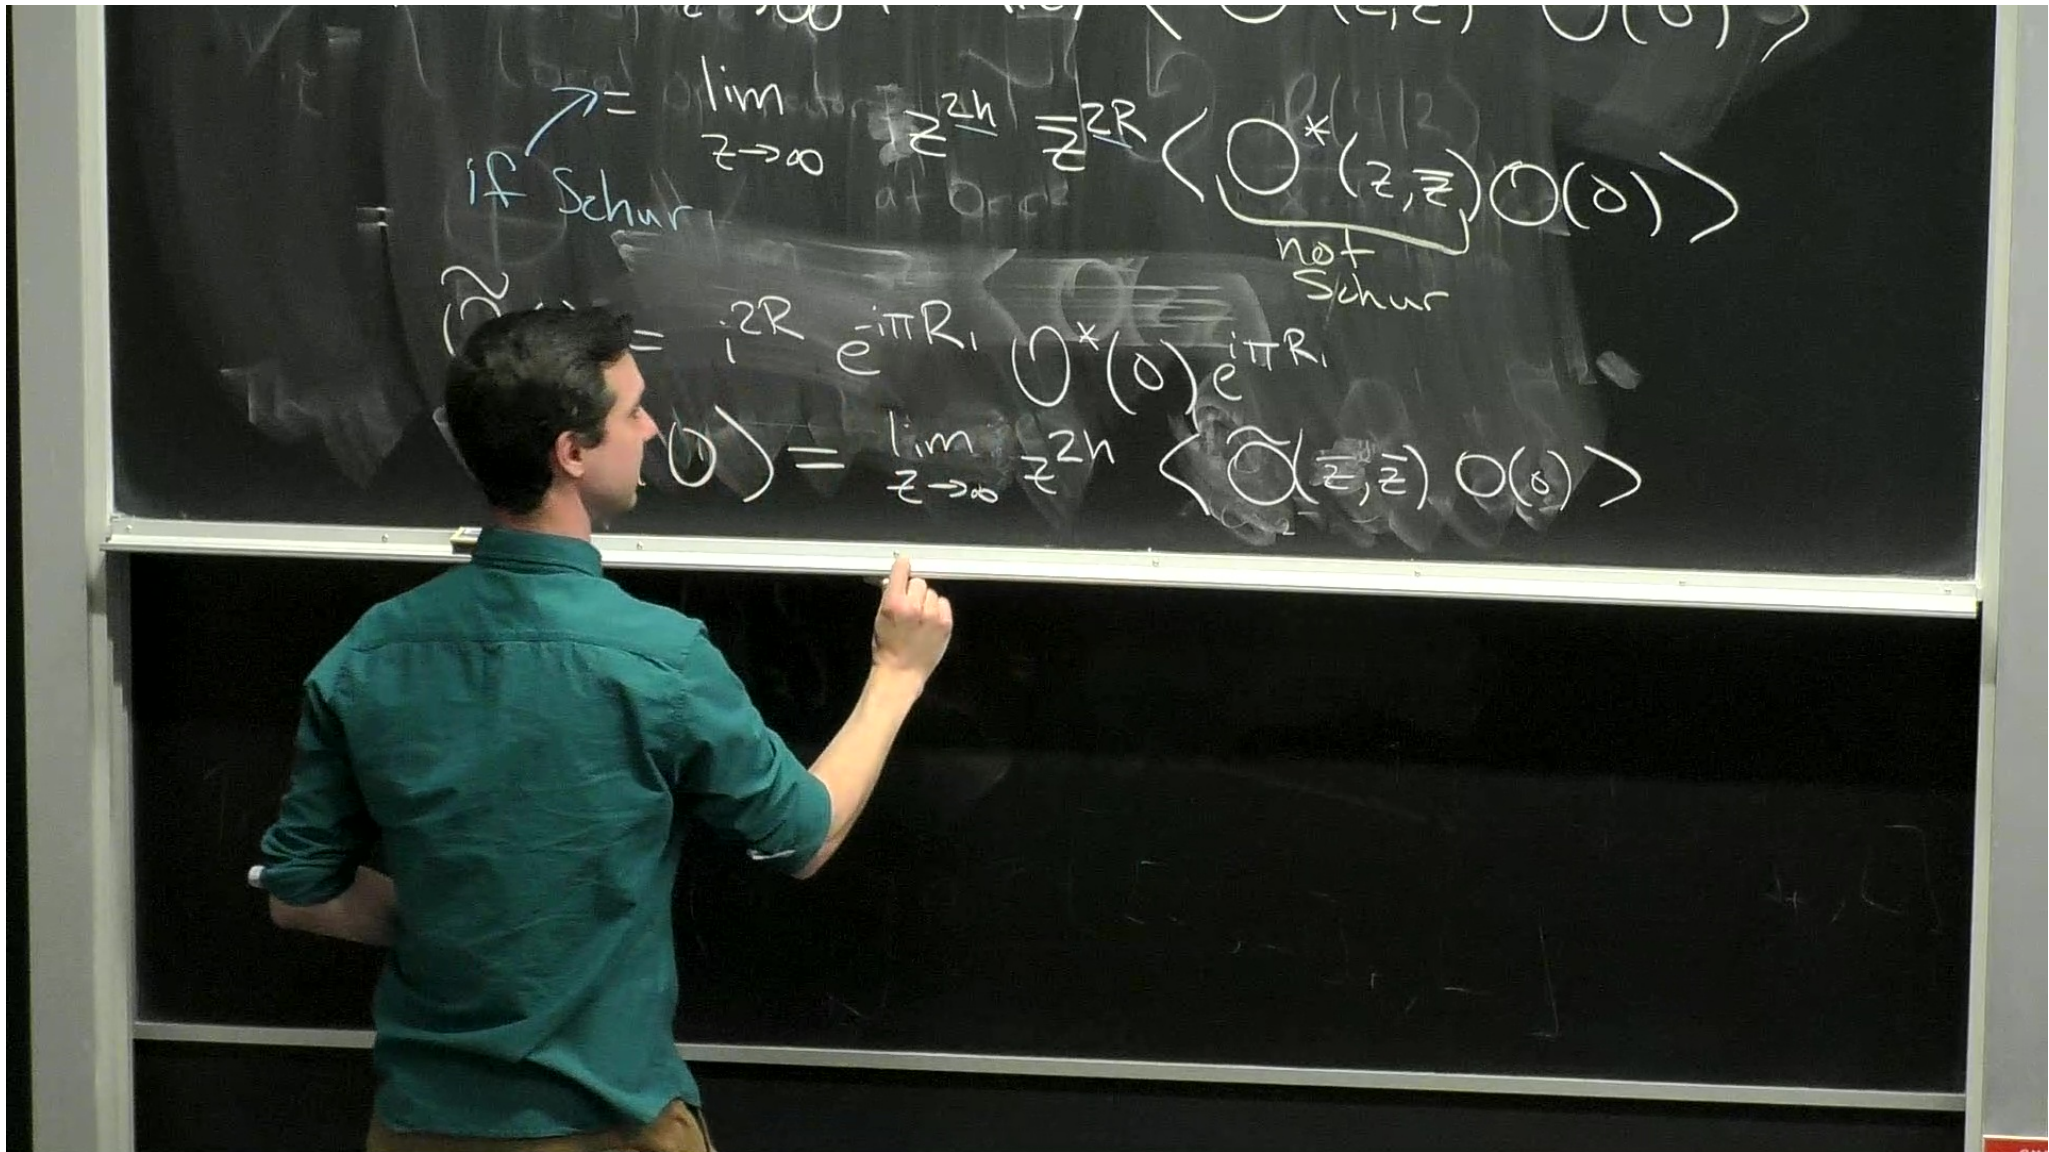 = lim z→∞ z^{2h} z̄^{2R} ⟨O*(z,z̄)O(0)⟩
if Schur
not
Schur
Õ = i^{2R} e^{-iπR₁} O*(0) e^{iπR₁}
O⟩ = lim z→∞ z^{2h} ⟨Õ(z̄,z̄) O(0)⟩